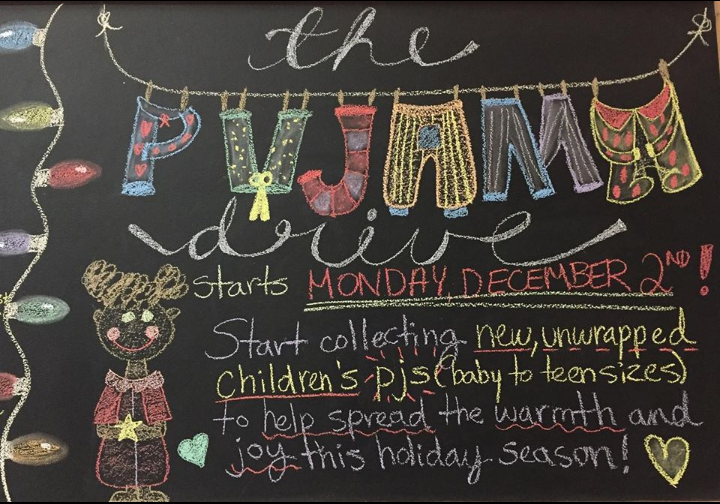 the
PYJAMA
drive
starts MONDAY, DECEMBER 2ND!
Start collecting new, unwrapped
children's pjs (baby to teen sizes)
to help spread the warmth and
joy this holiday season!